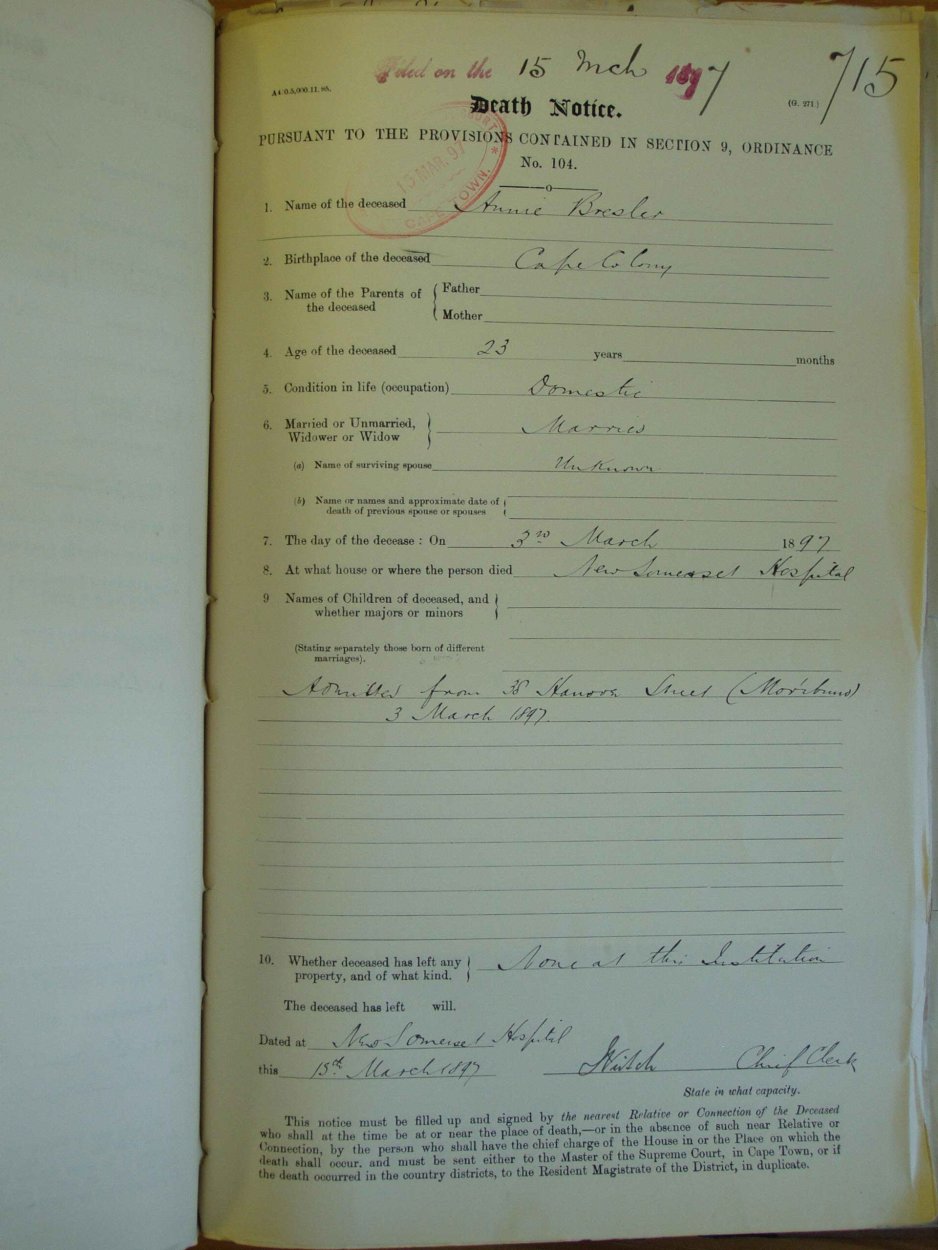 Filed on the 15 Mch 1897
715
A 4/0.5,000.11.95.
(G. 271.)
Death Notice.
PURSUANT TO THE PROVISIONS CONTAINED IN SECTION 9, ORDINANCE
No. 104.
15 MAR. 97
CAPE TOWN.
1. Name of the deceased Annie Bresler
2. Birthplace of the deceased Cape Colony
3. Name of the Parents of the deceased
Father
Mother
4. Age of the deceased 23 years months
5. Condition in life (occupation) Domestic
6. Married or Unmarried, Widower or Widow Married
(a) Name of surviving spouse Unknown
(b) Name or names and approximate date of
death of previous spouse or spouses
7. The day of the decease : On 3rd March 1897
8. At what house or where the person died New Somerset Hospital
9 Names of Children of deceased, and
whether majors or minors
(Stating separately those born of different
marriages).
Admitted from 38 Hanover Street (Moribund)
3 March 1897.
10. Whether deceased has left any
property, and of what kind. None at this Institution
The deceased has left will.
Dated at New Somerset Hospital
this 15th March 1897 Chief Clerk
State in what capacity.
This notice must be filled up and signed by the nearest Relative or Connection of the Deceased
who shall at the time be at or near the place of death,—or in the absence of such near Relative or
Connection, by the person who shall have the chief charge of the House in or the Place on which the
death shall occur. and must be sent either to the Master of the Supreme Court, in Cape Town, or if
the death occurred in the country districts, to the Resident Magistrate of the District, in duplicate.